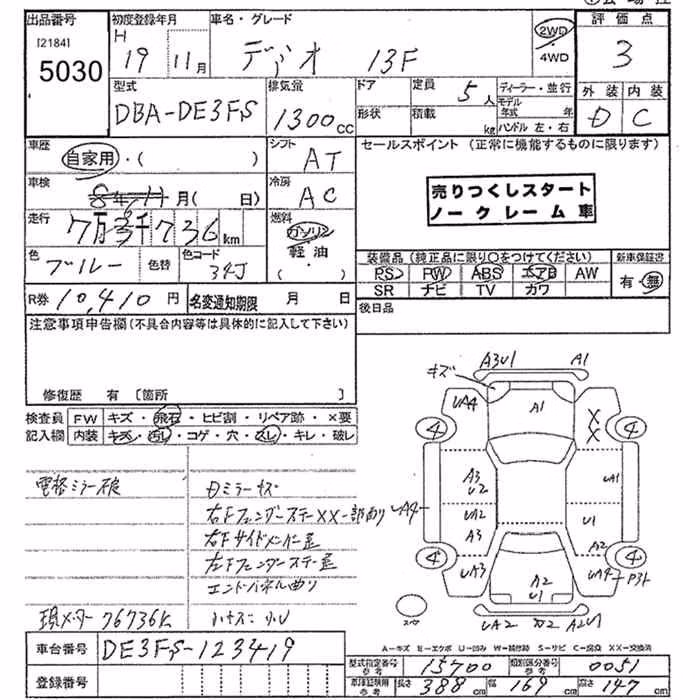 出品番号 初度登録年月 車名・グレード 2WD 評価点
[2184] H
5030 19 11月 デミオ 13F 4WD 3
型式 排気量 ドア 定員 5人 ディーラー・並行 外装 内装
DBA-DE3FS 1300cc 形状 積載 kg モデル年式 年 D C
ハンドル 左・右
車歴 自家用・( ) シフト AT セールスポイント (正常に機能するものに限ります)
車検 8年11月( 日) 冷房 AC 売りつくしスタート
走行 7万3千736km 燃料 ガソリン ノークレーム車
軽油
色 ブルー 色替 色コード 34J ・( ) 装備品 (純正品に限り○をつけてください) 新車保証書
PS PW ABS エアB AW 有・無
R券 10,410円 名変通知期限 月 日 SR ナビ TV カワ
注意事項申告欄(不具合内容等は具体的に記入して下さい) 後日品
修復歴 有 [箇所 ]
検査員 FW キズ・飛石・ヒビ割・リペア跡・×要
記入欄 内装 キズ・汚レ・コゲ・穴・スレ・キレ・破レ
電格ミラー不良 Dミラーキズ
右Fフェンダーステー××一部曲り
右Fサイドメンバー歪
左Fフェンダーステー歪
エンドパネル曲り
現メーター76736k
キズ A3U1 A1
UA4 A1 X X
4 4
A3 U2 UA1
UA4 UA2 U1
A3 A2
4 UA3 A2 U1 UA4 P31 4
スペア UA2 A2U1
A-キズ E-エクボ U-凹み W-補修跡 S-サビ C-腐食 XX-交換済
車台番号 DE3FS-123419
登録番号
型式指定番号 参考 15700 類別区分番号 参考 0051
車庫証明用 参考 長さ 388cm 幅 169cm 高さ 147cm